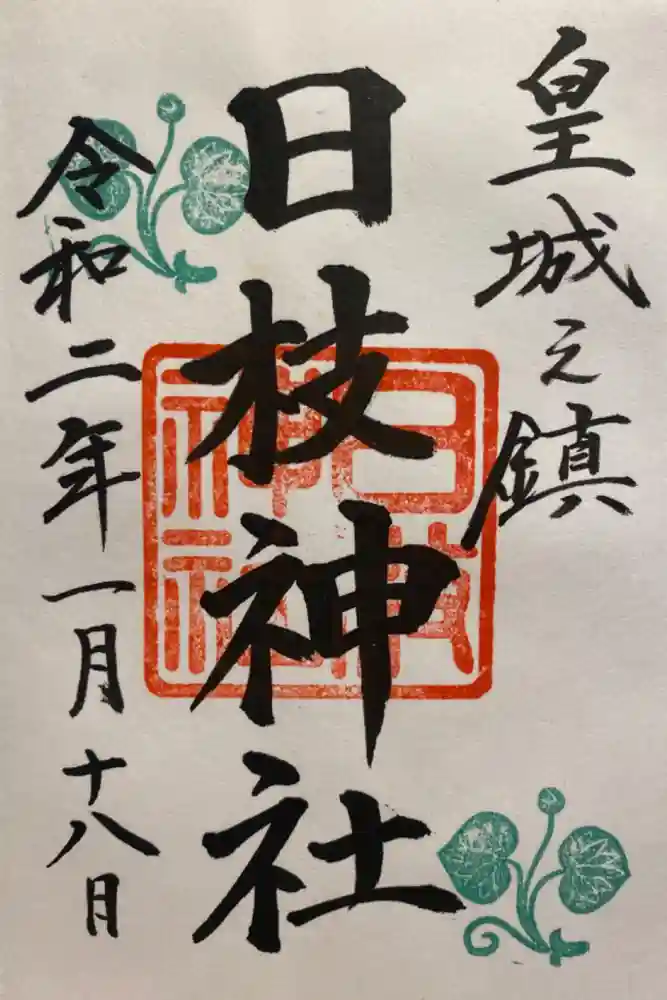 皇城之鎮
日枝神社
令和二年一月十八日
日枝
神社